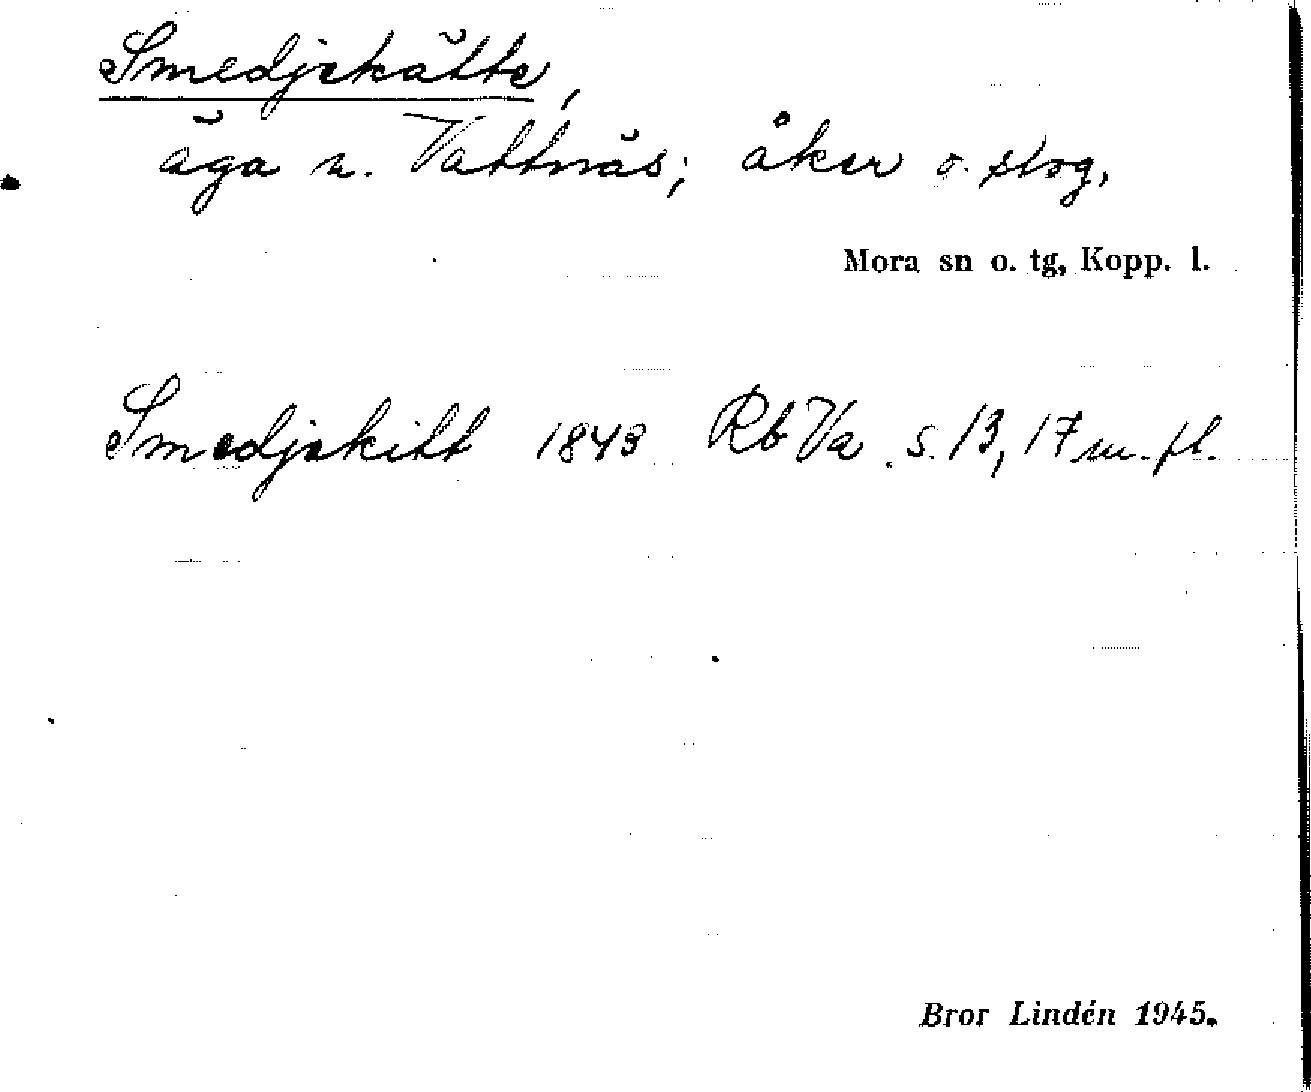 Smedjskätte,
äga u. Vattnäs; åker o. slog,
Mora sn o. tg, Kopp. l.
Smedjskitt 1843 Rb Va s. 13, 17 m. fl.
Bror Lindén 1945.